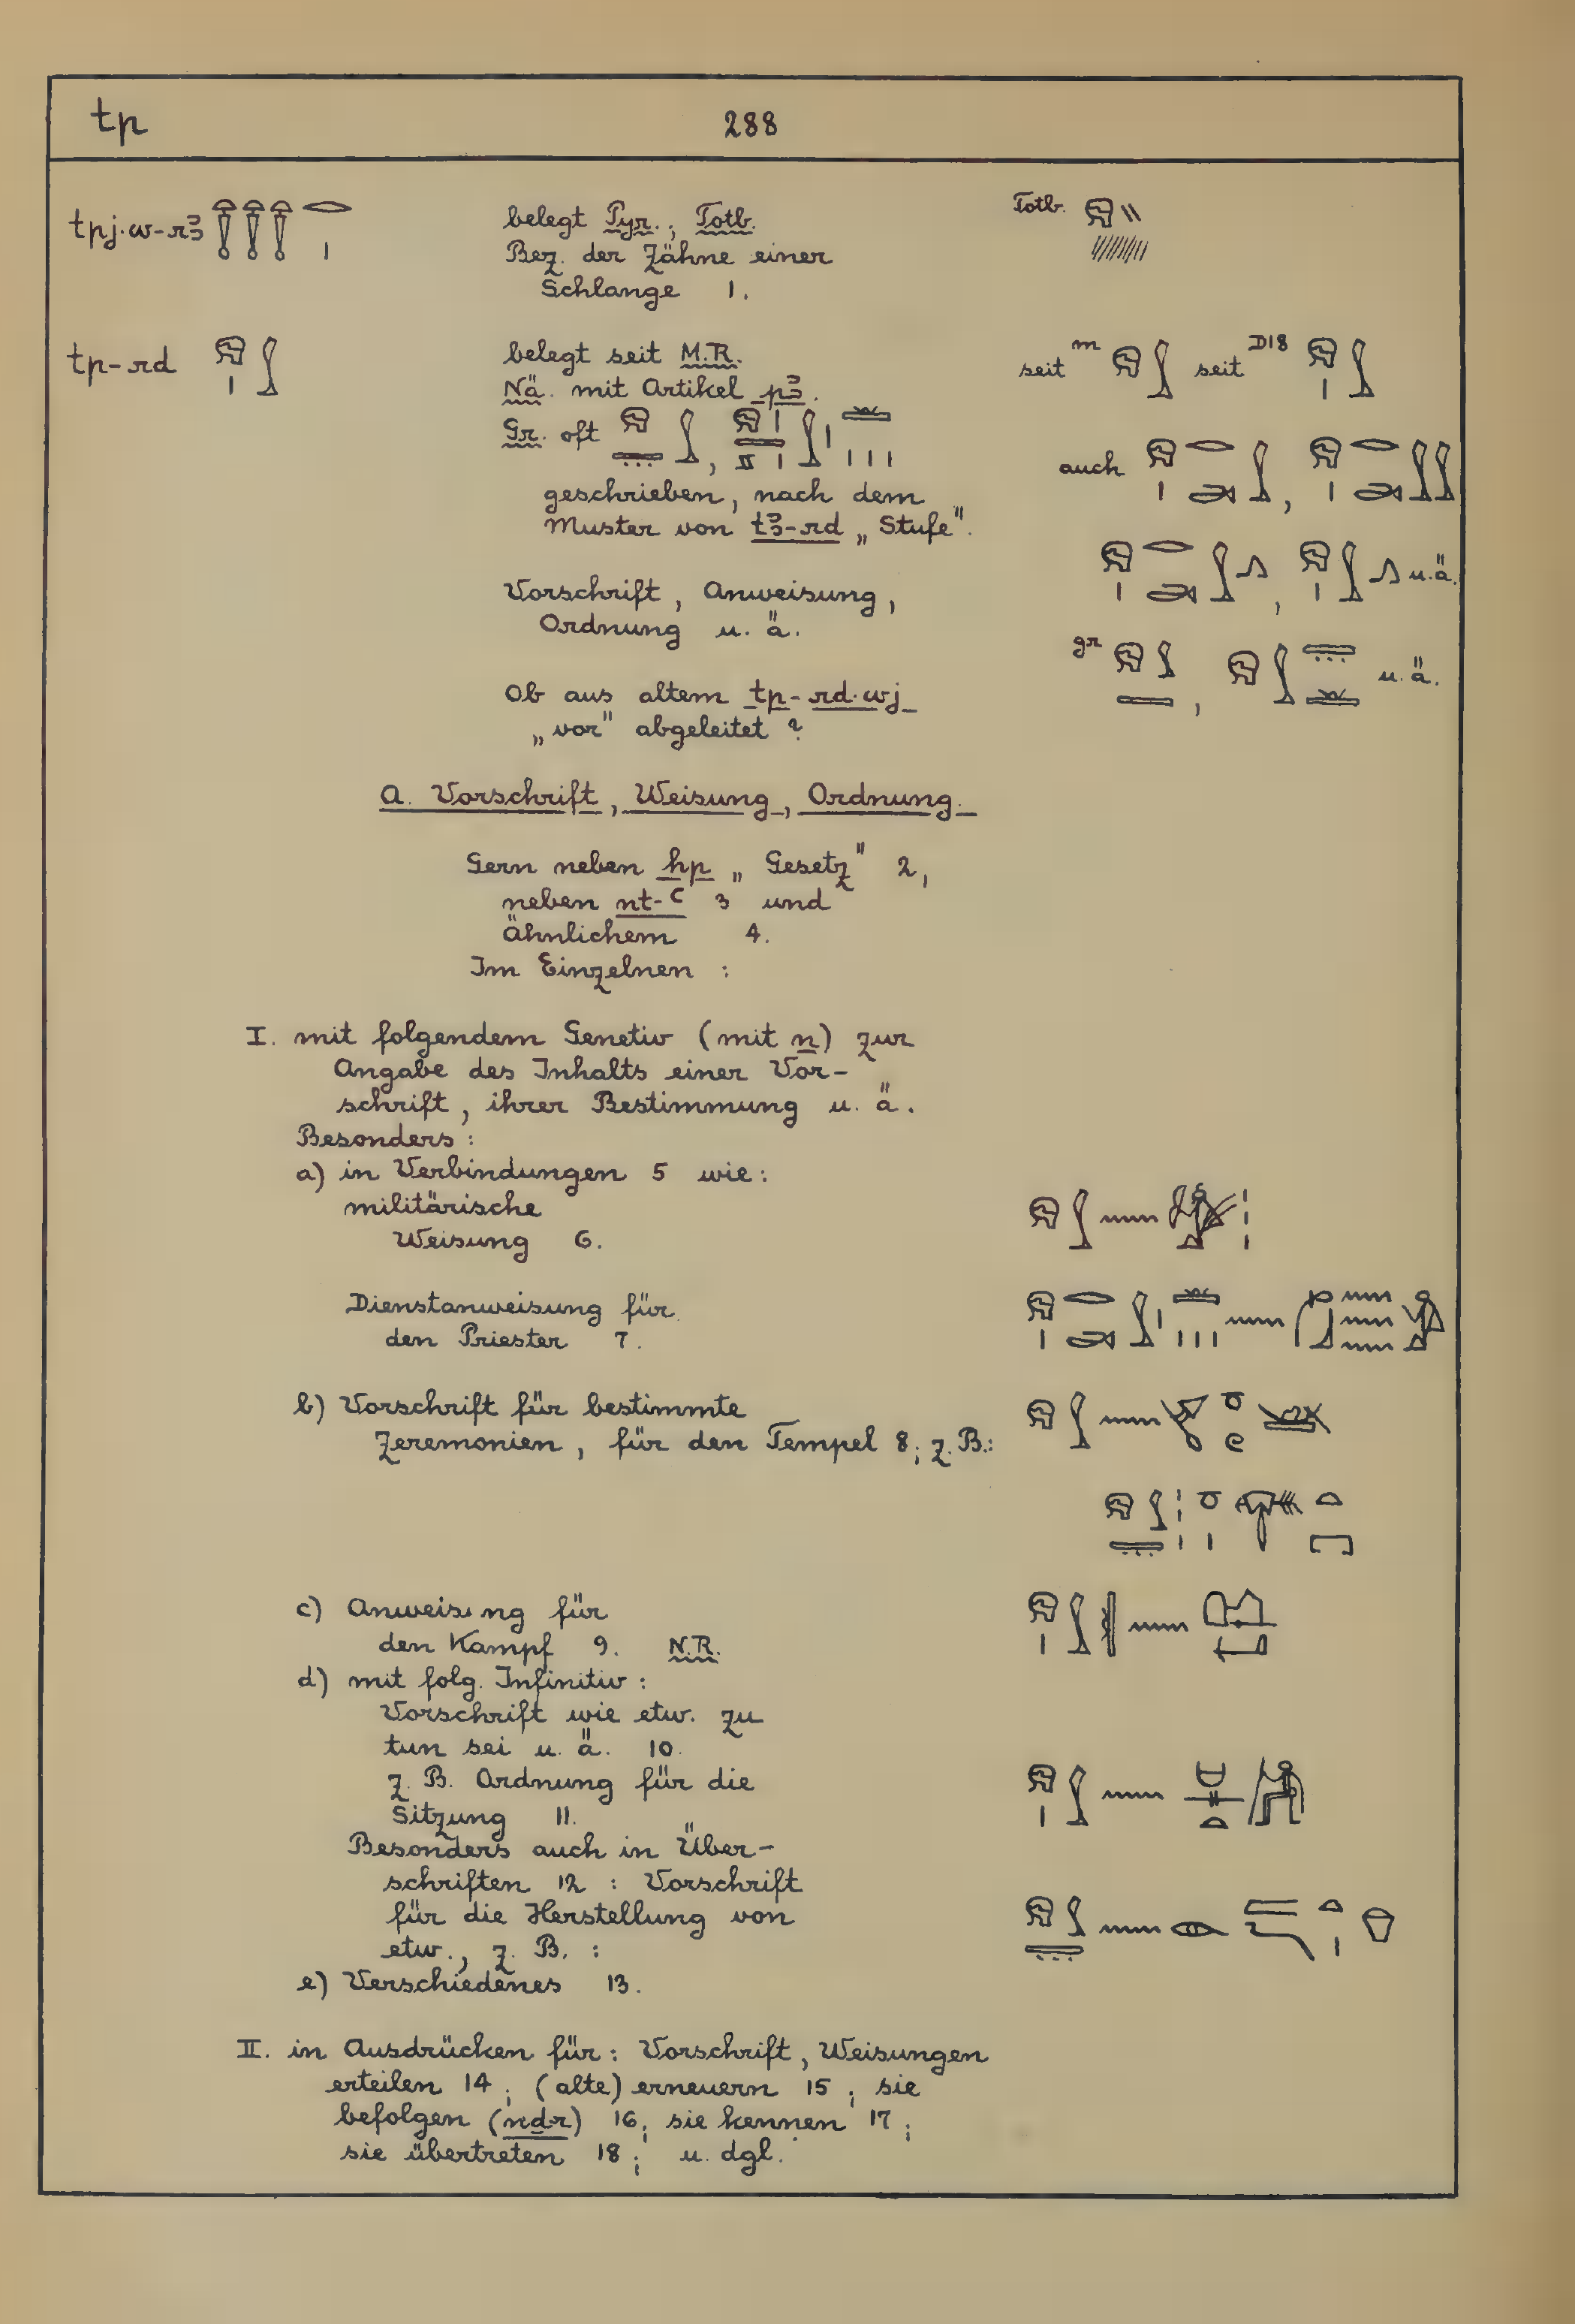 tp 288
tpj.w-rꜣ belegt Pyr.; Totb. Totb.
Bez. der Zähne einer
Schlange 1.
tp-rd belegt seit M.R. seit m seit D18
Nä. mit Artikel pꜣ.
Gr. oft , auch ,
geschrieben, nach dem
Muster von tꜣ-rd „Stufe".
, u.ä.
Vorschrift, Anweisung,
Ordnung u. ä.
gr , u.ä.
Ob aus altem tp-rd.wj
„vor" abgeleitet?
A. Vorschrift, Weisung, Ordnung.
Gern neben hp „Gesetz" 2,
neben nt-ꜥ 3 und
ähnlichem 4.
Im Einzelnen :
I. mit folgendem Genetiv (mit n) zur
Angabe des Inhalts einer Vor-
schrift, ihrer Bestimmung u. ä.
Besonders :
a) in Verbindungen 5 wie :
militärische
Weisung 6.
Dienstanweisung für
den Priester 7.
b) Vorschrift für bestimmte
Zeremonien, für den Tempel 8; z. B.:
c) Anweisung für
den Kampf 9. N.R.
d) mit folg. Infinitiv :
Vorschrift wie etw. zu
tun sei u. ä. 10.
z. B. Ordnung für die
Sitzung 11.
Besonders auch in Über-
schriften 12 : Vorschrift
für die Herstellung von
etw., z. B. :
e) Verschiedenes 13.
II. in Ausdrücken für : Vorschrift, Weisungen
erteilen 14; (alte) erneuern 15; sie
befolgen (nḏr) 16; sie kennen 17;
sie übertreten 18; u. dgl.